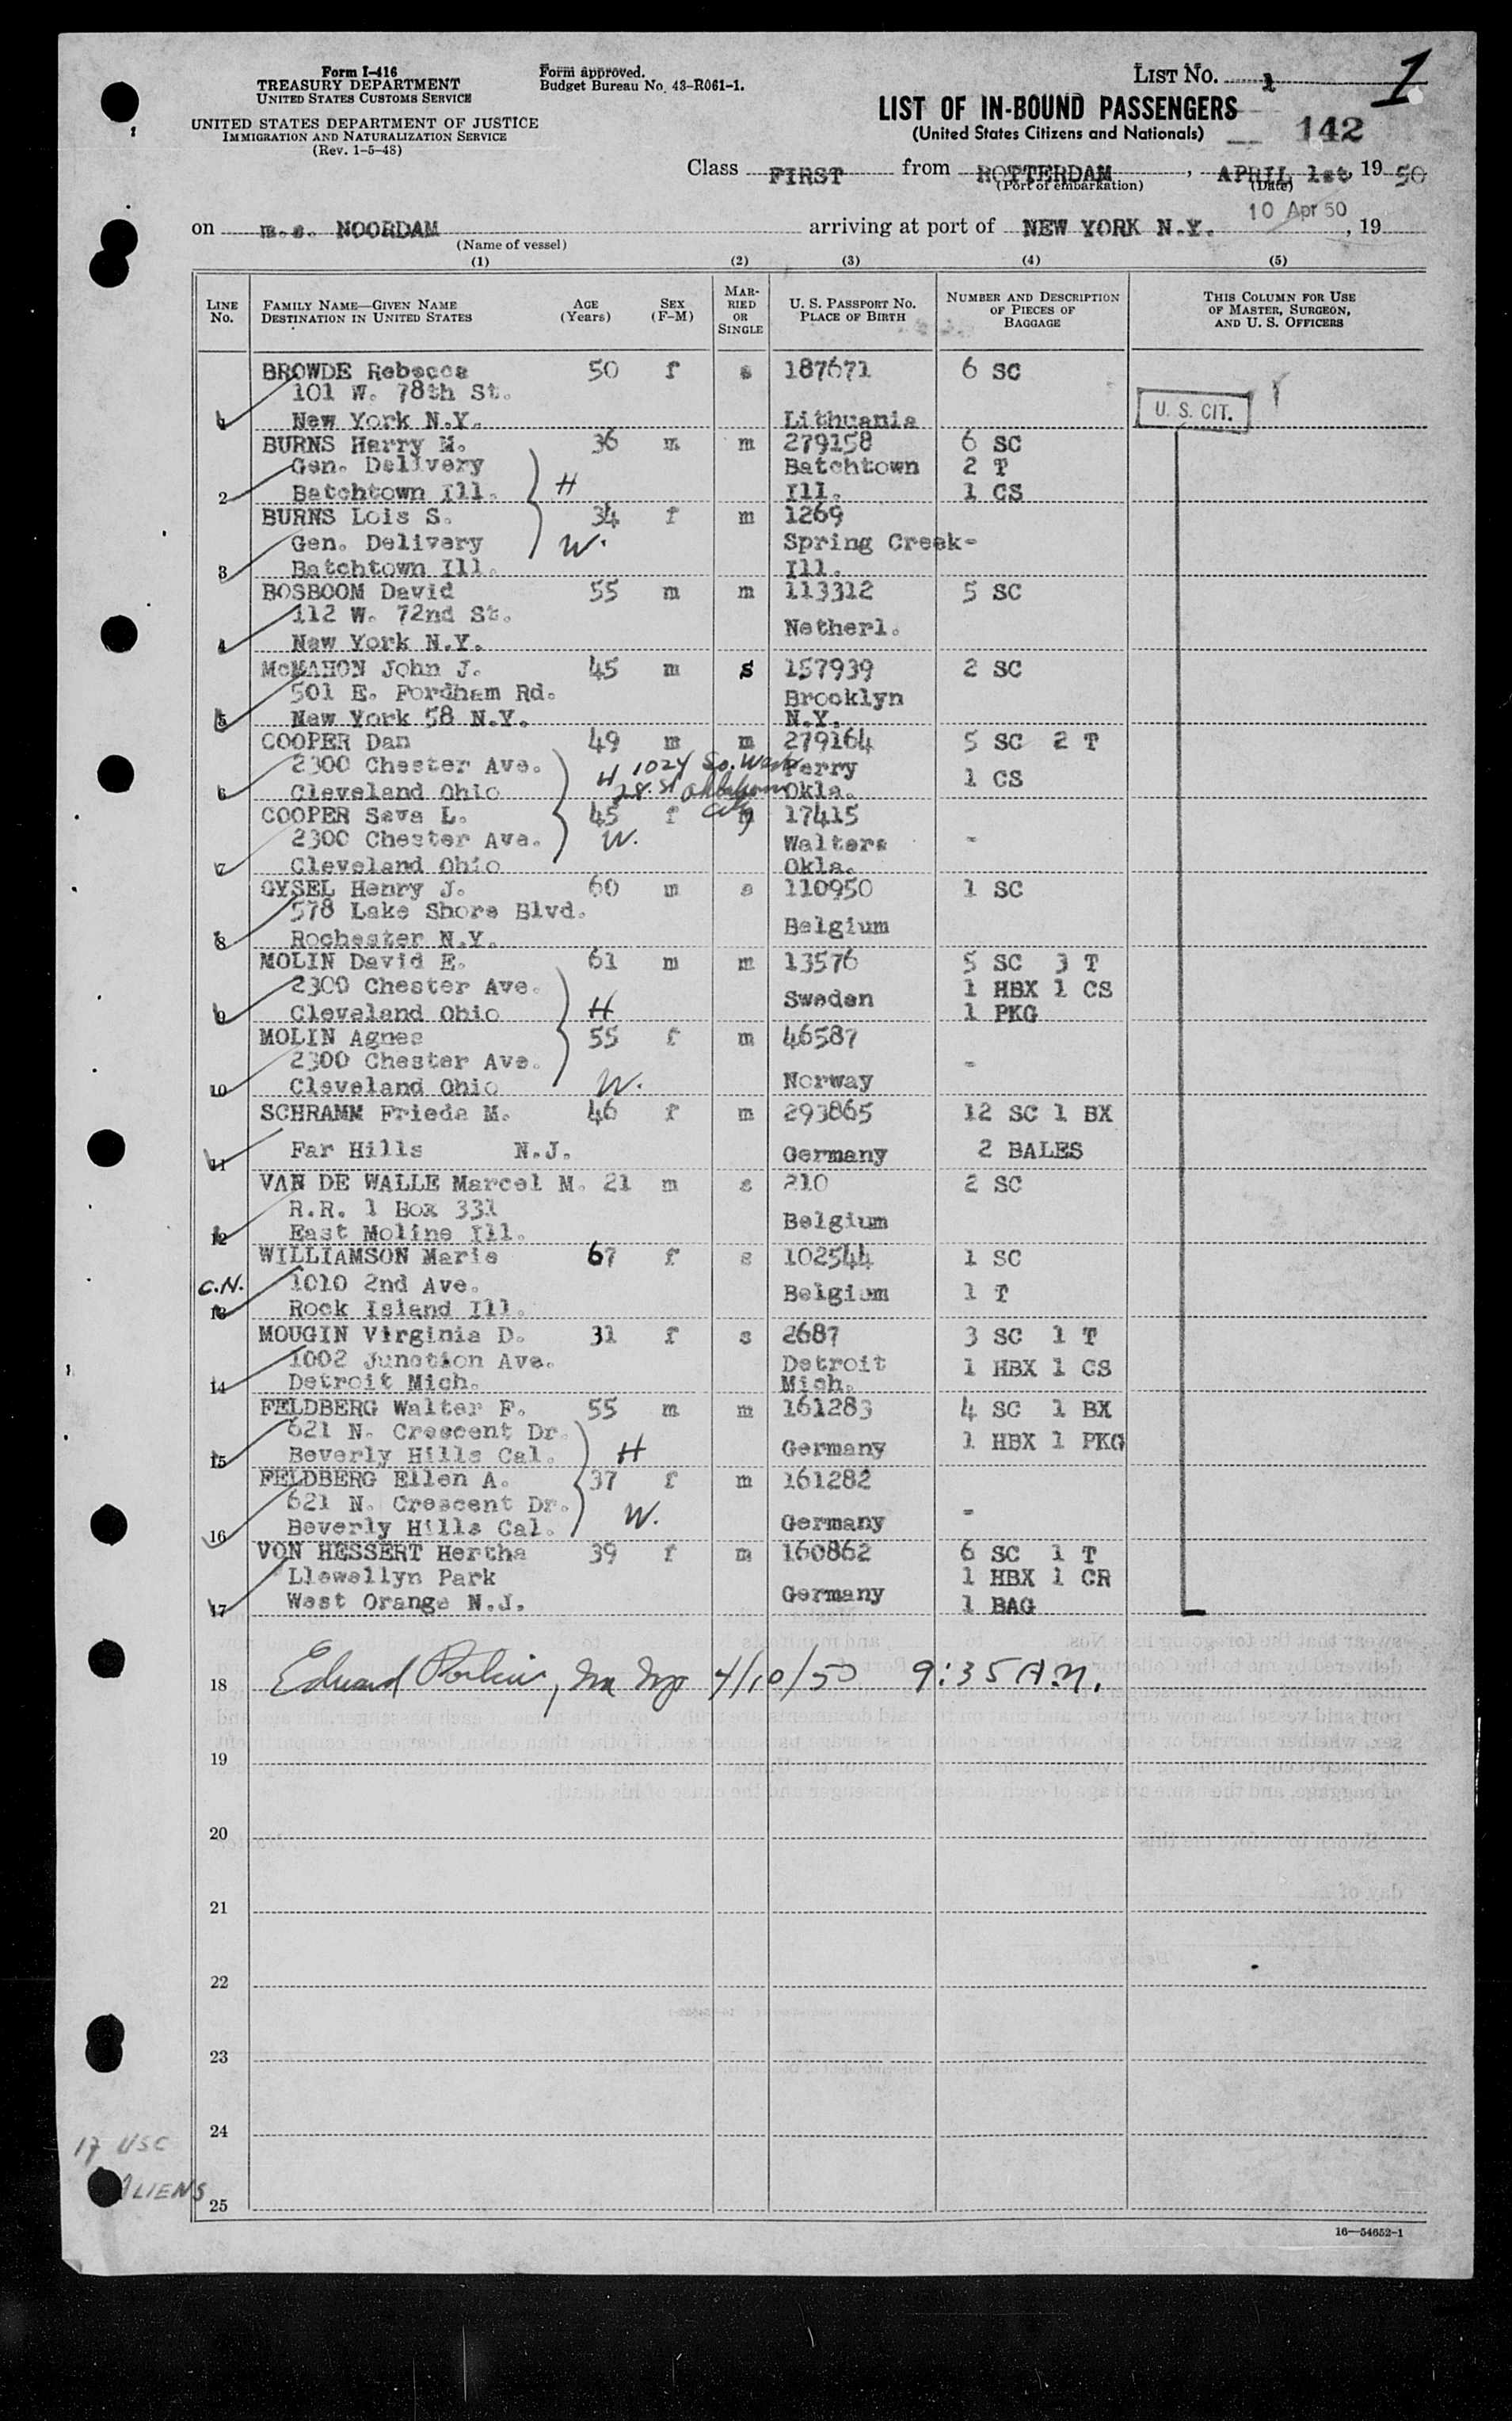 Form I-416
TREASURY DEPARTMENT
UNITED STATES CUSTOMS SERVICE
UNITED STATES DEPARTMENT OF JUSTICE
IMMIGRATION AND NATURALIZATION SERVICE
(Rev. 1-5-48)
Form approved.
Budget Bureau No. 43-R061-1.
LIST No. 1
1
LIST OF IN-BOUND PASSENGERS
(United States Citizens and Nationals)
142
Class FIRST from ROTTERDAM, APRIL 1st, 19 50
(Port of embarkation) (Date)
10 Apr 50
on m.s. NOORDAM arriving at port of NEW YORK N.Y., 19
(Name of vessel)
(1) (2) (3) (4) (5)
LINE No. FAMILY NAME—GIVEN NAME DESTINATION IN UNITED STATES AGE (Years) SEX (F-M) MARRIED OR SINGLE U. S. PASSPORT No. PLACE OF BIRTH NUMBER AND DESCRIPTION OF PIECES OF BAGGAGE THIS COLUMN FOR USE OF MASTER, SURGEON, AND U. S. OFFICERS
BROWDE Rebecca 50 f s 187671 6 SC
101 W. 78th St.
1 New York N.Y. Lithuania U. S. CIT.
BURNS Harry M. 36 m m 279158 6 SC
Gen. Delivery Batchtown 2 T
2 Batchtown Ill. H Ill. 1 CS
BURNS Lois S. 34 f m 1269
Gen. Delivery W. Spring Creek-
3 Batchtown Ill. Ill.
BOSBOOM David 55 m m 113312 5 SC
112 W. 72nd St. Netherl.
4 New York N.Y.
McMAHON John J. 45 m s 157939 2 SC
501 E. Fordham Rd. Brooklyn
5 New York 58 N.Y. N.Y.
COOPER Dan 49 m m 279164 5 SC 2 T
2300 Chester Ave. H 1024 So. West Perry 1 CS
6 Cleveland Ohio 28. St Oklahoma City Okla.
COOPER Seva L. 45 f m 17415
2300 Chester Ave. W. Walters -
7 Cleveland Ohio Okla.
GYSEL Henry J. 60 m s 110950 1 SC
578 Lake Shore Blvd. Belgium
8 Rochester N.Y.
MOLIN David E. 61 m m 13576 5 SC 3 T
2300 Chester Ave. Sweden 1 HBX 1 CS
9 Cleveland Ohio H 1 PKG
MOLIN Agnes 55 f m 46587
2300 Chester Ave. -
10 Cleveland Ohio W. Norway
SCHRAMM Frieda M. 46 f m 293865 12 SC 1 BX
11 Far Hills N.J. Germany 2 BALES
VAN DE WALLE Marcel M. 21 m s 210 2 SC
R.R. 1 Box 331 Belgium
12 East Moline Ill.
WILLIAMSON Marie 67 f s 102544 1 SC
C.N. 1010 2nd Ave. Belgium 1 T
13 Rock Island Ill.
MOUGIN Virginia D. 31 f s 2687 3 SC 1 T
1002 Junction Ave. Detroit 1 HBX 1 CS
14 Detroit Mich. Mich.
FELDBERG Walter F. 55 m m 161283 4 SC 1 BX
621 N. Crescent Dr. 1 HBX 1 PKG
15 Beverly Hills Cal. H Germany
FELDBERG Ellen A. 37 f m 161282
621 N. Crescent Dr. W. -
16 Beverly Hills Cal. Germany
VON HESSERT Hertha 39 f m 160862 6 SC 1 T
Llewellyn Park Germany 1 HBX 1 CR
17 West Orange N.J. 1 BAG
18 Edward 4/10/50 9:35 A.M.
19
20
21
22
23
24
17 USC
ALIENS
25
16—54652-1